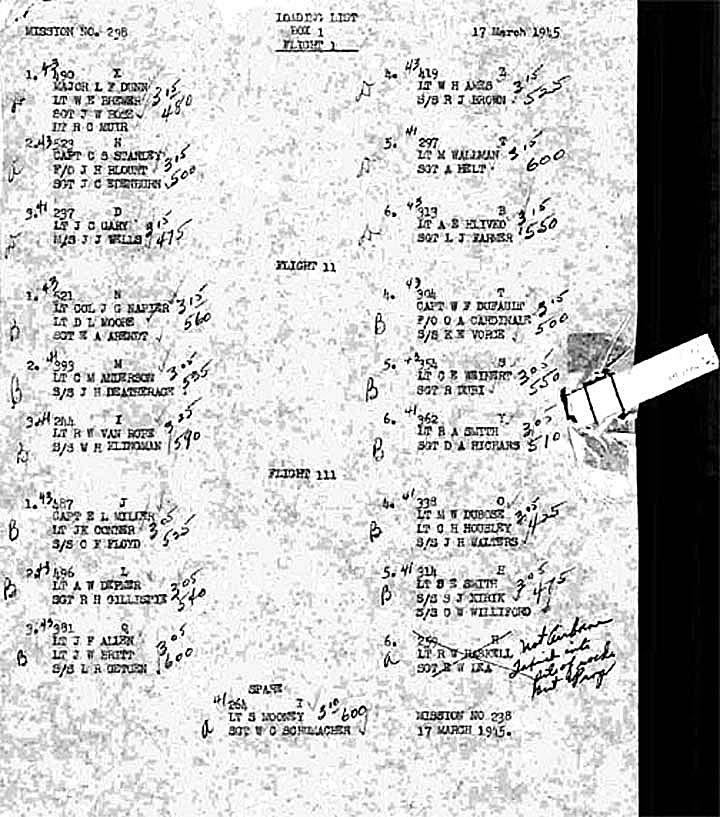 LOADING LIST
MISSION NO. 298 BOX 1 17 March 1945
FLIGHT 1
1. 43 490 X
MAJOR L F DUNN 315
LT W E BREWER 480
SGT J W ROSE
LT R C MUIR
4. 43 419
LT W H AMES 315
S/S R J BROWN 525
2. 43 529 N
CAPT C S STANLEY 315
F/O J H BLOUNT 500
SGT J C EDENBURN
5. 41 297 T
LT M WALLMAN 315
SGT A HELT 600
3. 41 237 D
LT J C GARY 315
M/S J J WELLS 475
6. 43 313 B
LT A E HLIVKO 315
SGT L J FARMER 550
FLIGHT 11
1. 43 521 N
LT COL J G NAPIER 315
LT D L MOORE 560
SGT E A ARENDT
B
4. 43 304 T
CAPT W F DUFAULT 315
F/O O A CARDINALE 500
S/S E E VORIE
B
2. 41 393 M
LT C M ANDERSON 305
S/S J H DEATHERAGE 535
B
5. 43 354 S
LT C E WEINERT 305
SGT R DURI 550
B
3. 41 244 I
LT R W VAN ROPE 325
S/S W H KLINGMAN 590
B
6. 41 362 Y
LT R A SMITH 305
SGT D A RICHARS 510
B
FLIGHT 111
1. 43 487 J
CAPT E L MILLER 305
LT JK CONNER 525
S/S C F FLOYD
B
4. 41 338 O
LT M W DUBOSE 305
LT C H HOUSLEY 425
S/S J H WALTERS
B
2. 43 496 L
LT A W DEFNER 305
SGT R H GILLISPIE 540
B
5. 41 314 H
LT S E SMITH 305
S/S S J KIRIK 475
S/S O W WILLIFORD
B
3. 43 381 Q
LT J F ALLEN 305
LT J W BRITT 600
S/S L R GETGEN
B
6. 259 R
LT R W HASKELL
SGT E W LKA
a
Not Airborne
Taxied into
pile of rocks
bent Prop
SPARE
41 264 I
LT S MOONEY 310 600
SGT W C SCHUMACHER
a
MISSION NO 238
17 MARCH 1945.